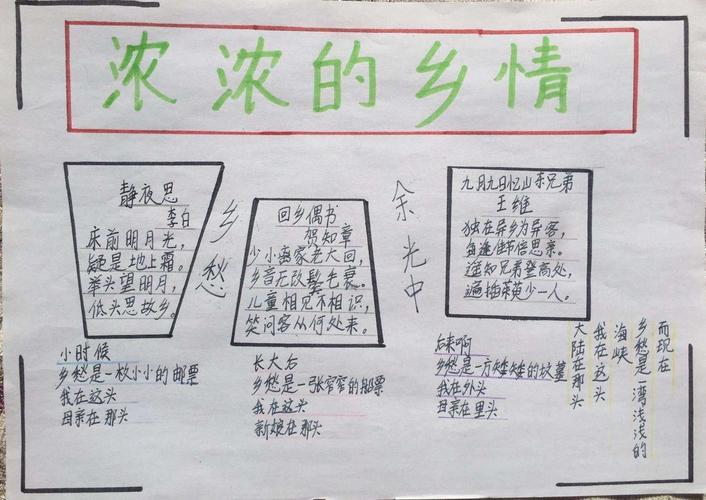 浓浓的乡情
静夜思
李白
床前明月光，
疑是地上霜。
举头望明月，
低头思故乡。
乡愁
回乡偶书
贺知章
少小离家老大回，
乡音无改鬓毛衰。
儿童相见不相识，
笑问客从何处来。
余光中
九月九日忆山东兄弟
王维
独在异乡为异客，
每逢佳节倍思亲。
遥知兄弟登高处，
遍插茱萸少一人。
小时候
乡愁是一枚小小的邮票
我在这头
母亲在那头
长大后
乡愁是一张窄窄的船票
我在这头
新娘在那头
后来啊
乡愁是一方矮矮的坟墓
我在外头
母亲在里头
而现在
乡愁是一湾浅浅的
海峡
我在这头
大陆在那头